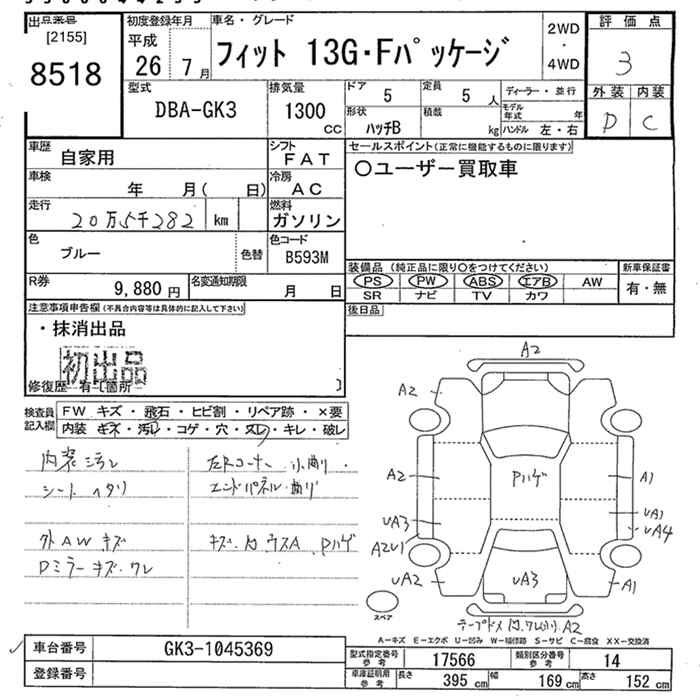 出品番号
[2155]
8518
初度登録年月
平成
26 7月
車名・グレード
フィット 13G・Fパッケージ
2WD
・
4WD
評価点
3
外装 内装
D C
型式
DBA-GK3
排気量
1300
CC
ドア
5
定員
5 人
形状
ハッチB
積載
kg
ディーラー・並行
モデル年式 年
ハンドル 左・右
車歴
自家用
シフト
FAT
車検
年 月( 日)
冷房
AC
走行
20万5千282 km
燃料
ガソリン
色
ブルー
色替
色コード
B593M
R券
9,880 円
名変通知期限
月 日
セールスポイント(正常に機能するものに限ります)
〇ユーザー買取車
装備品 (純正品に限り〇をつけてください)
PS PW ABS エアB AW
SR ナビ TV カワ
新車保証書
有・無
後日品
注意事項申告欄(不具合内容等は具体的に記入して下さい)
・抹消出品
初出品
修復歴 有〔箇所 〕
検査員記入欄
FW キズ・飛石・ヒビ割・リペア跡・×要
内装 キズ・汚レ・コゲ・穴・スレ・キレ・破レ
内装汚レ
シートヘタリ
外AWキズ
Dミラーキズ・ワレ
左Rコーナー 小曲り
エンドパネル・曲り
キズ・凹 ウスA Pハゲ
A2
A2
A2
Pハゲ
A1
UA3
UA1
UA4
A2U1
UA2
UA3
A1
A2
スペア
A-キズ E-エクボ U-凹み W-補修跡 S-サビ C-腐食 XX-交換済
車台番号
GK3-1045369
登録番号
型式指定番号
参考
17566
類別区分番号
参考
14
車庫証明用
参考
長さ
395 cm
幅
169 cm
高さ
152 cm